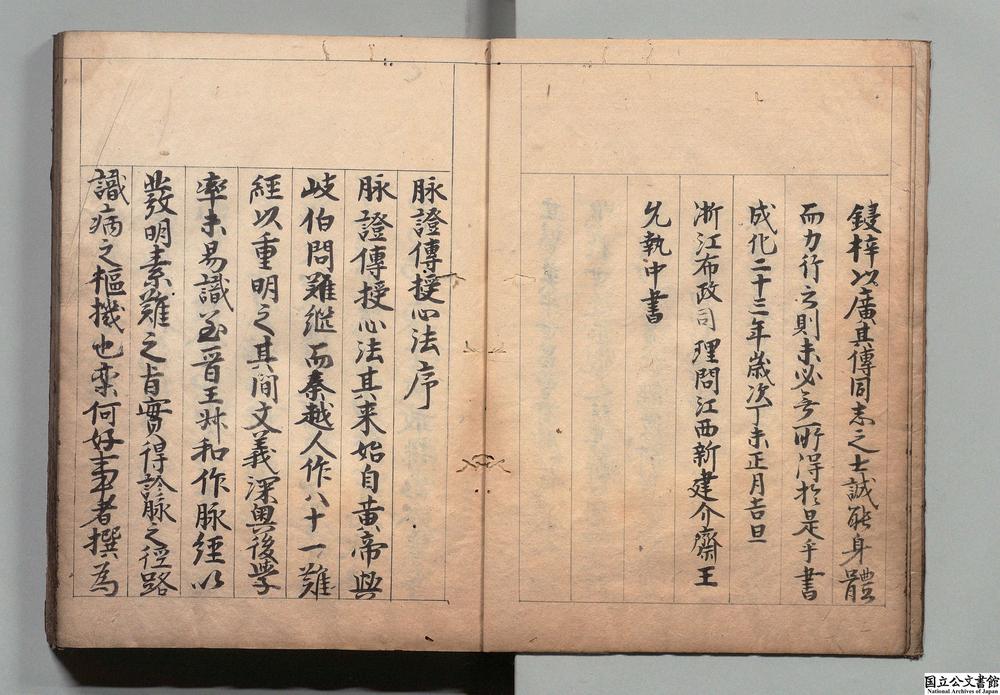 鋟梓以廣其傳同志之士誠能身體
而力行之則未必无所得於是乎書
成化二十三年歲次丁未正月吉旦
浙江布政司理問江西新建介齋王
允執中書
脉證傳授心法序
脉證傳授心法其来始自黄帝與
岐伯問難繼而秦越人作八十一難
經以重明之其間文義深奥後學
率未易識至晉王叔和作脉經以
發明素難之旨實得診脉之徑路
識病之樞機也柰何好事者撰為
国立公文書館
National Archives of Japan